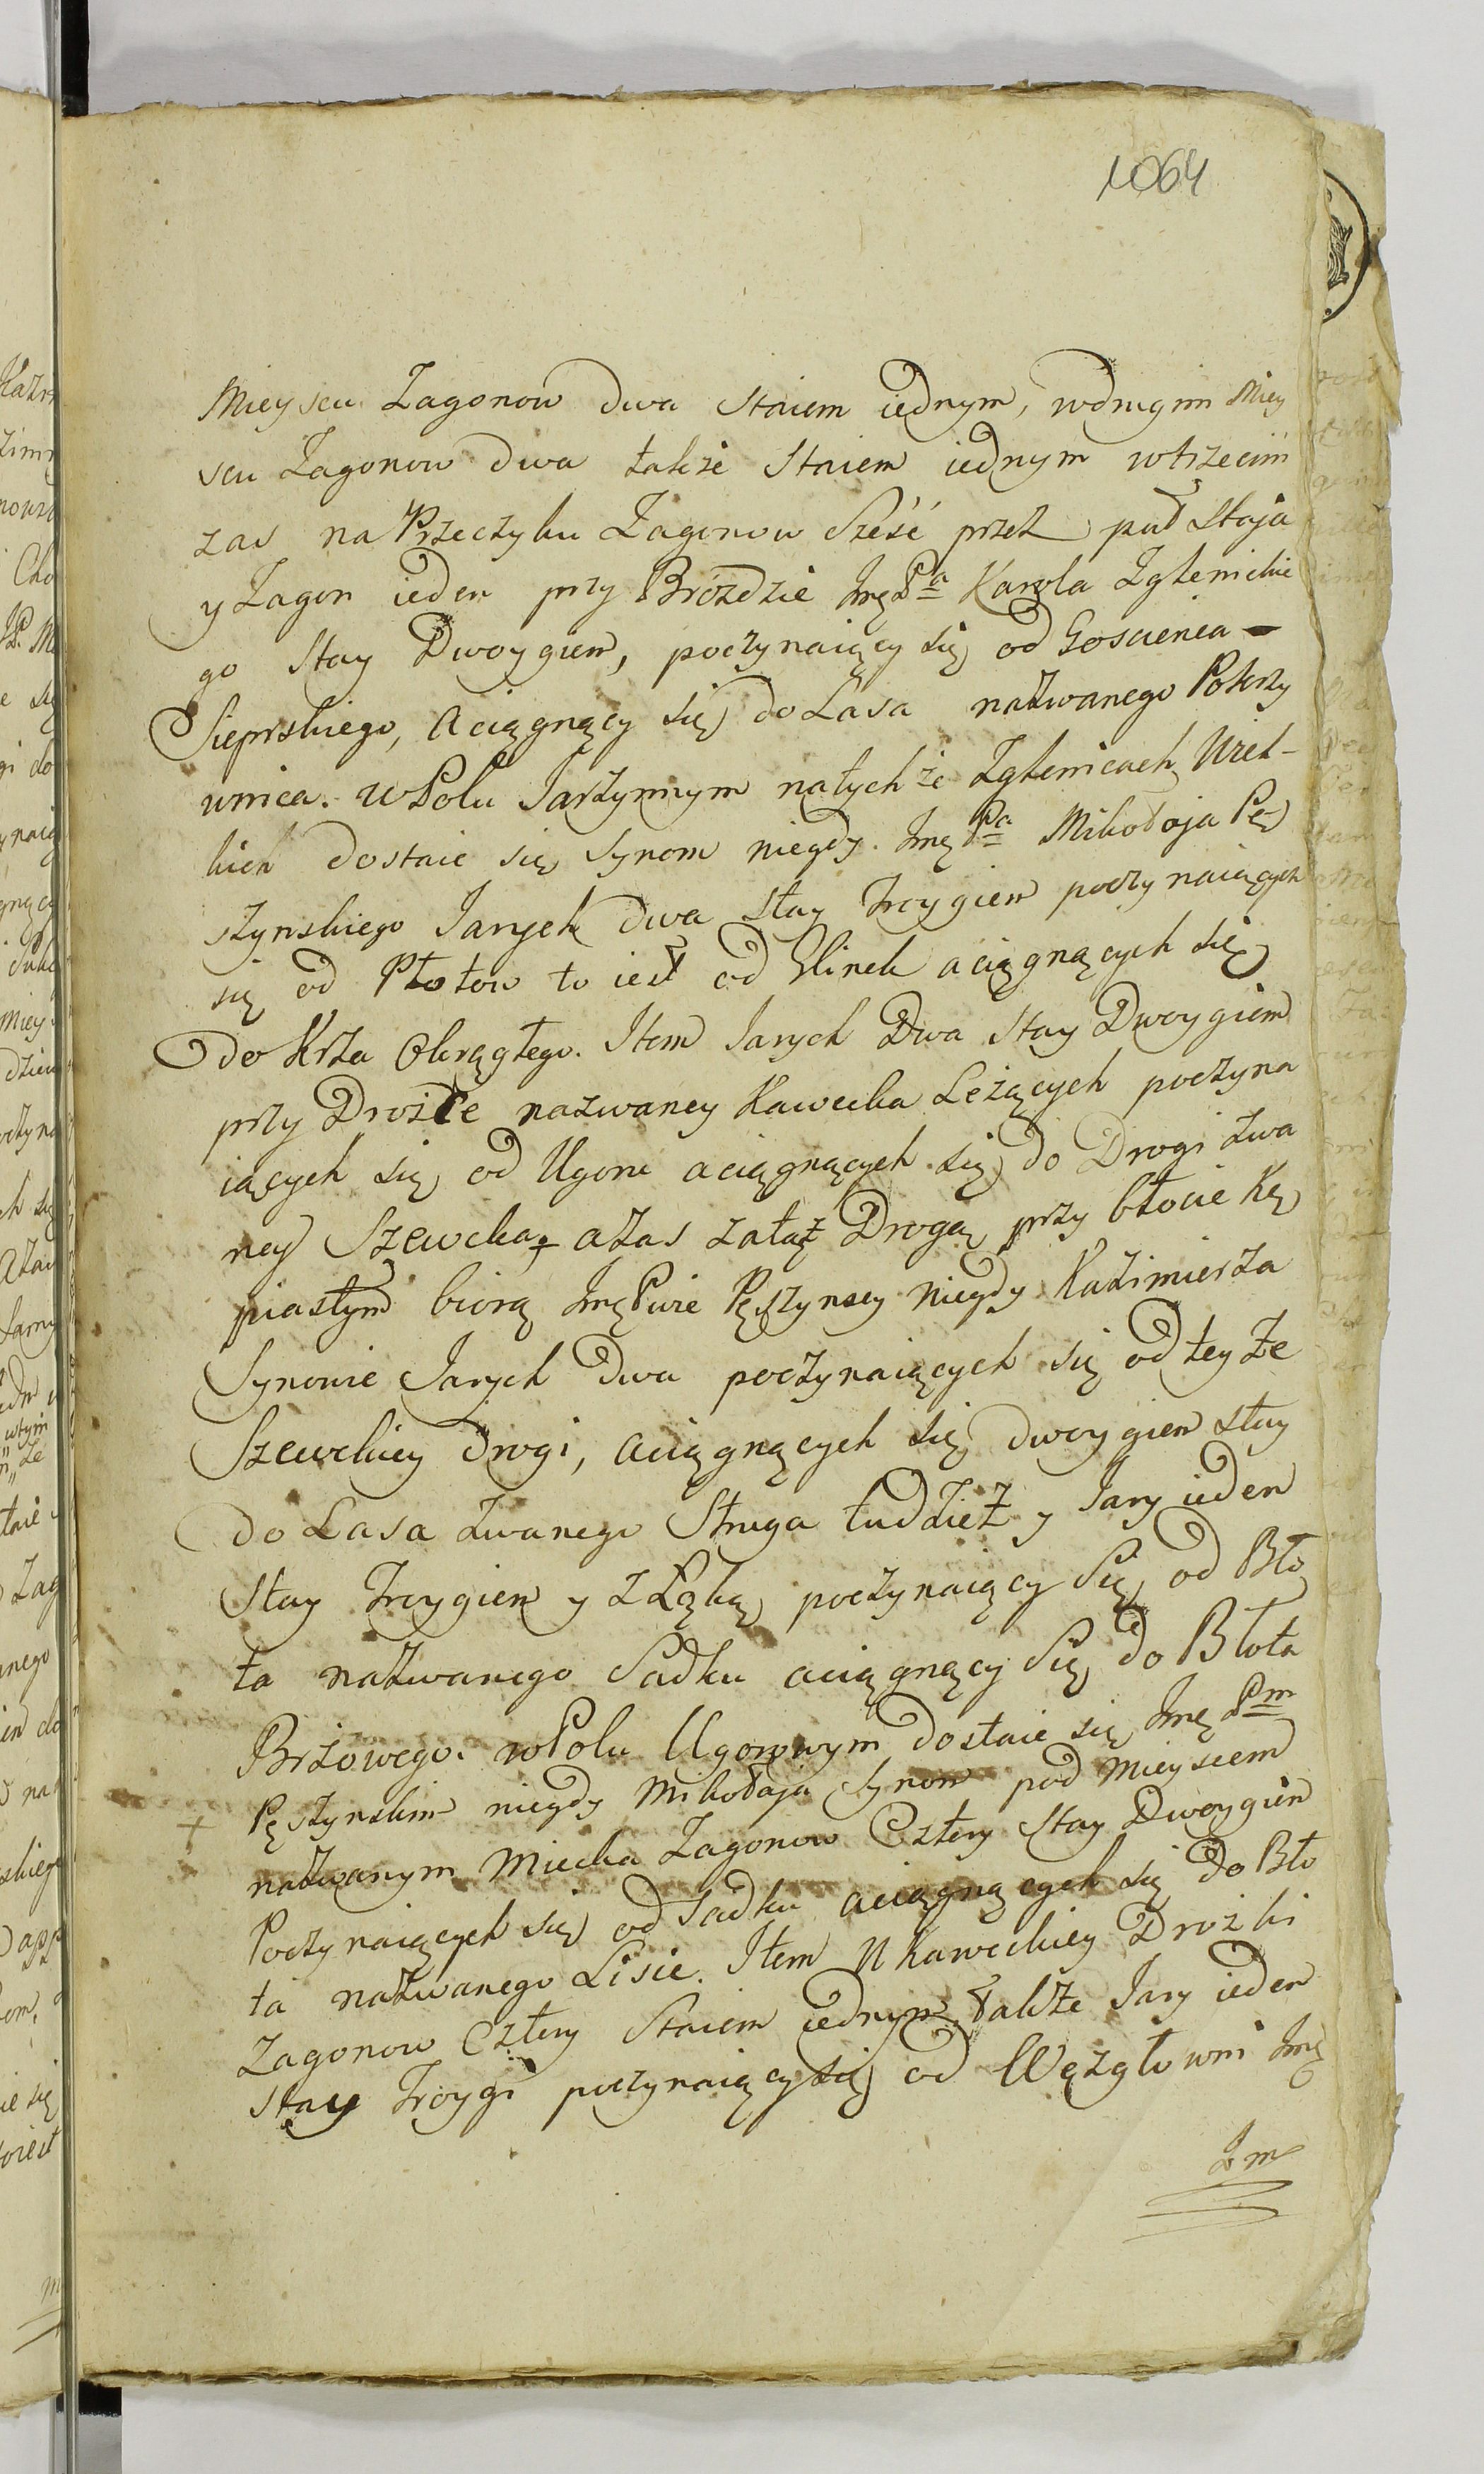 1064
Mieyscu Zagonow dwa Staiem iednym, wdrugim Miey
scu Zagonow dwa także Staiem iednym wtrzecim
zas na Przeczyku Zagonow Sześć przez puł Staja
y Zagon ieden przy Bróździe Jmę Pa Karola Zglenickie
go Stay Dwoygiem, poczynaiący się od Goscienca -
Sieprskiego, aciągnący się do Lasa nazwanego Pokrzy
wnica. w Polu Jarzynnym natychże Zglenicach Wiel-
kich dostaie się Synom niegdy. Jmę Pa Mikołaja Pę
szynskiego Jarych dwa stay Troygiem poczynaiących
się od Płotow to iest od Glinek aciągnących się
do Krza Okrągłego. Item Jarych Dwa Stay Dwoygiem
przy Drożce nazwaney Kawecka Leżących poczyna
iących się od Ugoru aciągnących się do Drogi zwa
ney Szewcka, azas zatąż Drogą przy błocie Kę
piastym biorą Jmę Pwie Pęszynscy niegdy Kazimierza
Synowie Jarych dwa poczynaiących się od teyże
Szewckiey drogi, aciągnących się dwoygiem stay
do Lasa zwanego Struga tudzież y Jary ieden
Stay Troygiem y z Łąką poczynaiący Się od Bło
ta nazwanego Sadku aciągnący Się do Błota
Brzowego. w Polu Ugorowym dostaie się Jmę Pm
+ Pęszynskim niegdy Mikołaja Synom pod mieyscem
nazwanym Miecka Zagonow Cztery Stay Dwoygiem
Poczynaiących się od Sadku aciągnących się do Bło
ta nazwanego Lisie. Item U Kaweckiey Drożki
Zagonow Cztery Staiem iednym także Jary ieden
Stay Troygi poczynaiący się od Węzgłowni Jmę
Jm